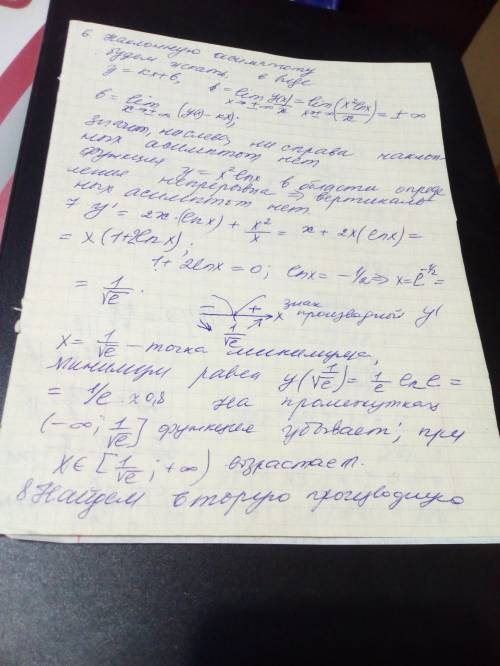 6. Наклонную асимптоту
будем искать в виде
y = kx+b, k = lim y(x)/x = lim (x² ln x / x) = ± ∞
x→±∞ x→±∞
b = lim (y(x) - kx);
x→±∞
Значит, ни слева, ни справа наклон-
ных асимптот нет
функция y = x² ln x в области опреде
ления непрерывна ⇒ вертикаль-
ных асимптот нет.
7 y' = 2x · (ln x) + x²/x = x + 2x (ln x) =
= x (1+2ln x);
1+ 2ln x = 0; ln x = -1/2 ⇒ x = e^-1/2 =
= 1/√e.
− + x знак
1/√e производной y'
x = 1/√e - точка минимума,
минимум равен y(1/√e) = 1/e ln e =
= 1/e на промежутках
(-∞; 1/√e] функция убывает; при
x ∈ [1/√e; +∞) возрастает.
8. Найдем вторую производную